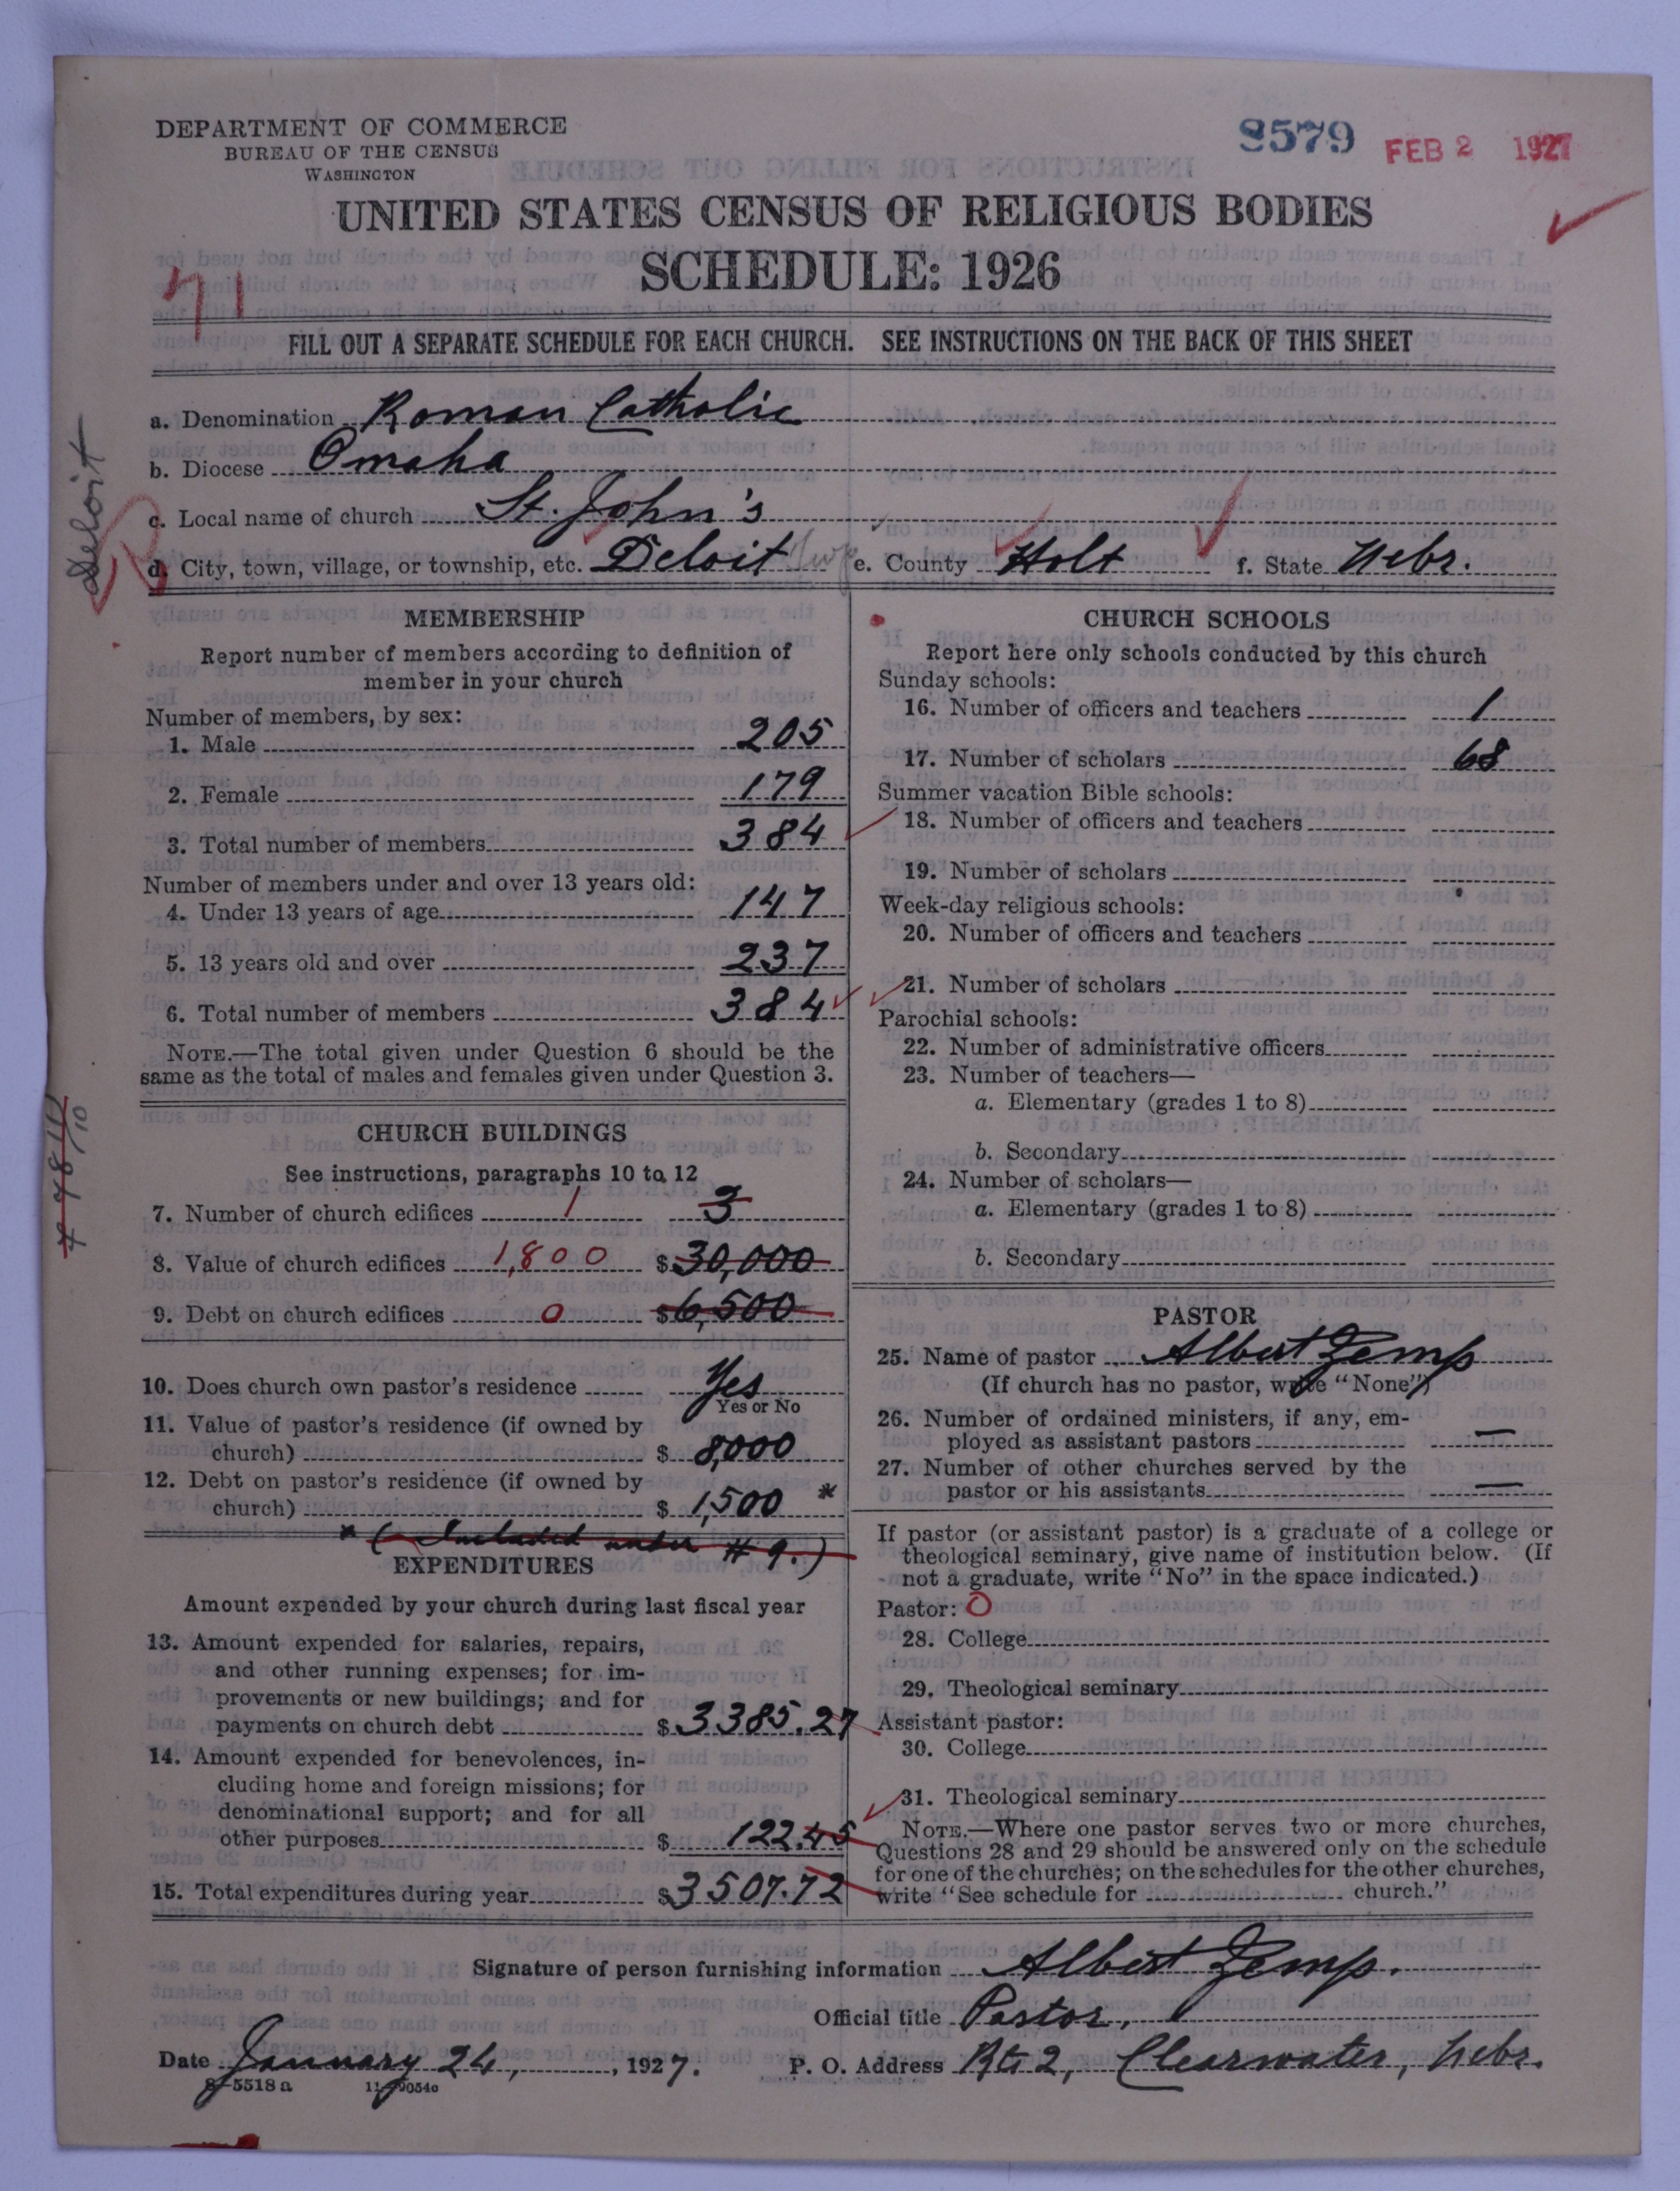 DEPARTMENT OF COMMERCE
BUREAU OF THE CENSUS
WASHINGTON
8579 FEB 2 1927
UNITED STATES CENSUS OF RELIGIOUS BODIES
SCHEDULE: 1926
71
FILL OUT A SEPARATE SCHEDULE FOR EACH CHURCH. SEE INSTRUCTIONS ON THE BACK OF THIS SHEET
Deloit
a. Denomination Roman Catholic
b. Diocese Omaha
c. Local name of church St. John's
d. City, town, village, or township, etc. Deloit Twp e. County Holt f. State Nebr.
MEMBERSHIP
Report number of members according to definition of
member in your church
Number of members, by sex:
1. Male 205
2. Female 179
3. Total number of members 384
Number of members under and over 13 years old:
4. Under 13 years of age 147
5. 13 years old and over 237
6. Total number of members 384
NOTE.—The total given under Question 6 should be the
same as the total of males and females given under Question 3.
CHURCH BUILDINGS
See instructions, paragraphs 10 to 12
7. Number of church edifices 1 3
8. Value of church edifices 1,800 $ 30,000
9. Debt on church edifices 0 $ 6,500
10. Does church own pastor's residence Yes
Yes or No
11. Value of pastor's residence (if owned by
church) $ 8,000
12. Debt on pastor's residence (if owned by
church) $ 1,500 *
* (Included under # 9.)
EXPENDITURES
Amount expended by your church during last fiscal year
13. Amount expended for salaries, repairs,
and other running expenses; for im-
provements or new buildings; and for
payments on church debt $ 3385.27
14. Amount expended for benevolences, in-
cluding home and foreign missions; for
denominational support; and for all
other purposes $ 122.45
15. Total expenditures during year $ 3507.72
CHURCH SCHOOLS
Report here only schools conducted by this church
Sunday schools:
16. Number of officers and teachers 1
17. Number of scholars 68
Summer vacation Bible schools:
18. Number of officers and teachers
19. Number of scholars
Week-day religious schools:
20. Number of officers and teachers
21. Number of scholars
Parochial schools:
22. Number of administrative officers
23. Number of teachers—
a. Elementary (grades 1 to 8)
b. Secondary
24. Number of scholars—
a. Elementary (grades 1 to 8)
b. Secondary
PASTOR
25. Name of pastor Albert Zemp
(If church has no pastor, write "None")
26. Number of ordained ministers, if any, em-
ployed as assistant pastors —
27. Number of other churches served by the
pastor or his assistants —
If pastor (or assistant pastor) is a graduate of a college or
theological seminary, give name of institution below. (If
not a graduate, write "No" in the space indicated.)
Pastor: 0
28. College
29. Theological seminary
Assistant pastor:
30. College
31. Theological seminary
NOTE.—Where one pastor serves two or more churches,
Questions 28 and 29 should be answered only on the schedule
for one of the churches; on the schedules for the other churches,
write "See schedule for church."
Signature of person furnishing information Albert Zemp.
Official title Pastor.
Date January 24, 1927. P. O. Address Rt. 2, Clearwater, Nebr.
8—5518 a